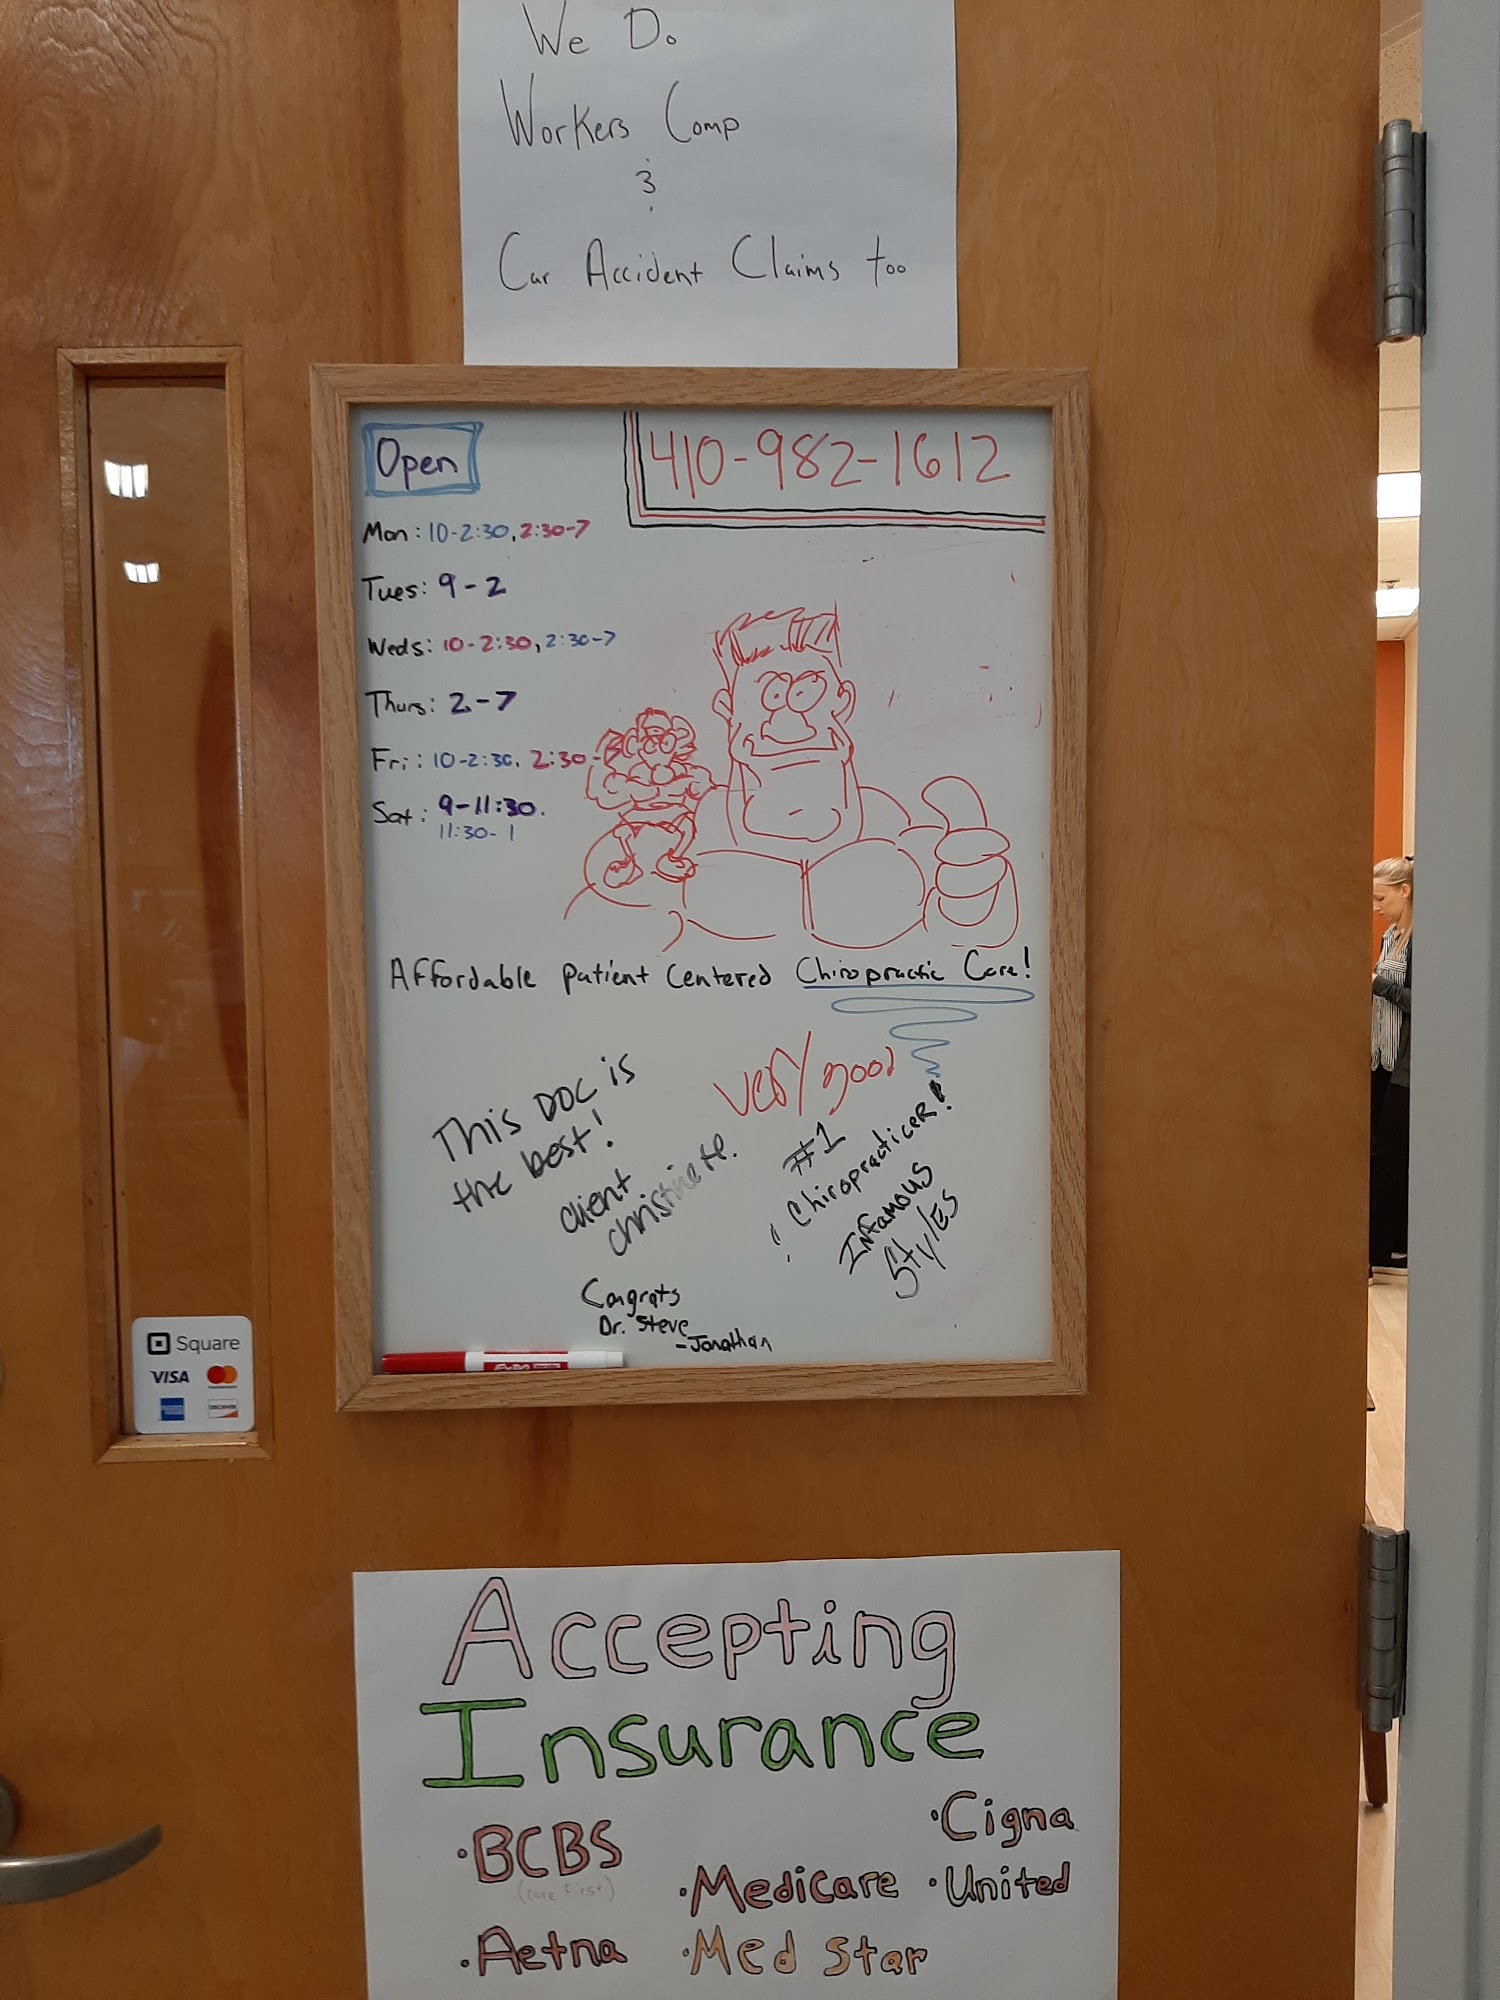 We Do
Workers Comp
&
Car Accident Claims too
Open
410-982-1612
Mon: 10-2:30, 2:30-7
Tues: 9-2
Weds: 10-2:30, 2:30-7
Thurs: 2-7
Fri: 10-2:30, 2:30-
Sat: 9-11:30.
11:30-1
Affordable Patient Centered Chiropractic Care!
This DOC is
the best!
client
christine H.
very good
#1
! Chiropracticer!
Infamous
Styles
Congrats
Dr. Steve
-Jonathan
EXPO
Square
VISA
mastercard
DISCOVER
Accepting
Insurance
• BCBS
(Care First)
• Aetna
• Medicare
• Med Star
• Cigna
• United